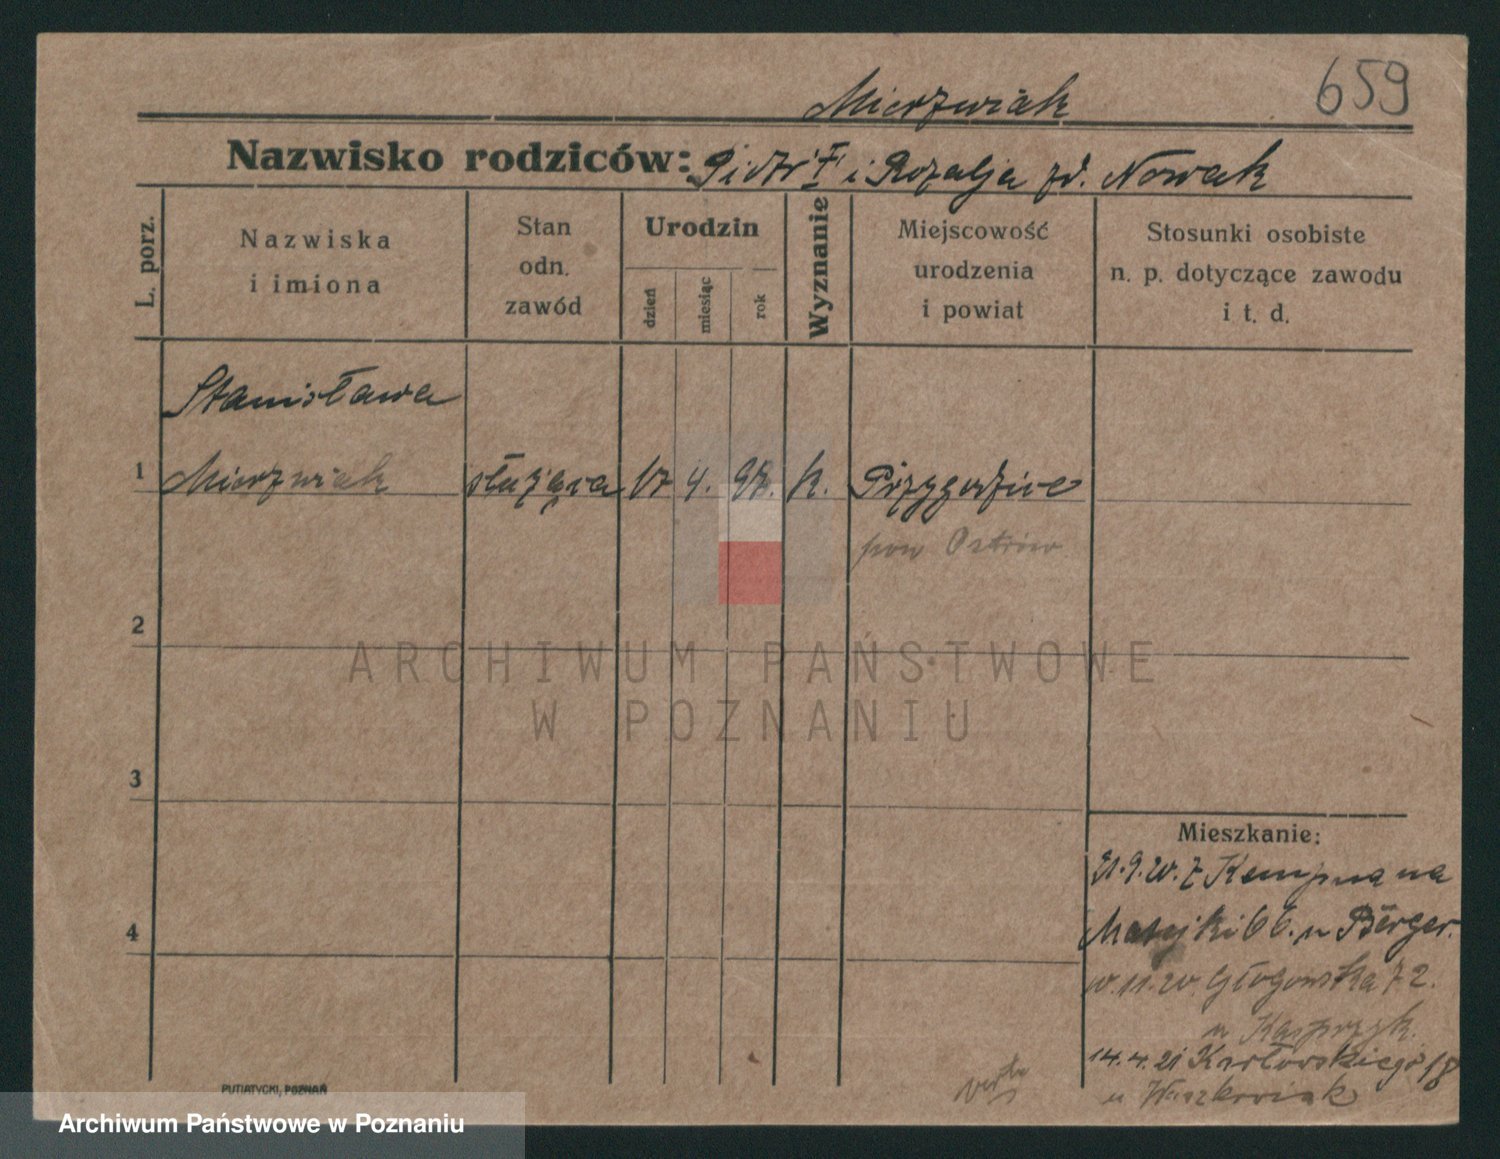 659
Mierzwiak
Nazwisko rodziców: Piotr i Rozalja zd. Nowak
L. porz.
Nazwiska
i imiona
Stan
odn.
zawód
Urodzin
dzień
miesiąc
rok
Wyznanie
Miejscowość
urodzenia
i powiat
Stosunki osobiste
n. p. dotyczące zawodu
i t. d.
Stanisława
1 Mierzwiak służąca 4. k. Przygodzice
pow Ostrów
2
3
4
Mieszkanie:
21.9.20. z Kempna na
Matejki 66. u Berger.
11.20. Głogowska 72.
u Kasprzyk.
14.4.21 Karłowskiego 18
u Waszkowiak
PUTIATYCKI, POZNAŃ
ARCHIWUM PAŃSTWOWE
W POZNANIU
Archiwum Państwowe w Poznaniu